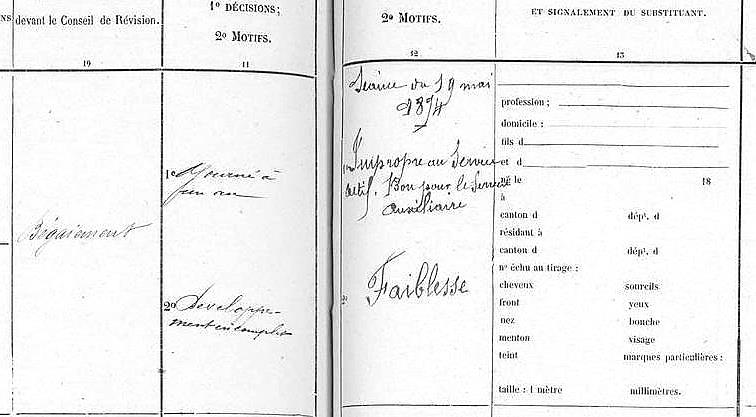 NS devant le Conseil de Révision.
10
1º DÉCISIONS;
2º MOTIFS.
11
2º MOTIFS.
12
ET SIGNALEMENT DU SUBSTITUANT.
13
Bégaiement
1º Ajourné à
un an
2º Developpe-
ment incomplet
Séance du 19 mai
1874
Impropre au Service
actif. Bon pour le Service
auxiliaire
2º
Faiblesse
profession ;
domicile :
fils d
et d
né le 18
à
canton d dépt. d
résidant à
canton d dépt. d
nº échu au tirage :
cheveux sourcils
front yeux
nez bouche
menton visage
teint marques particulières :
taille : 1 mètre millimètres.